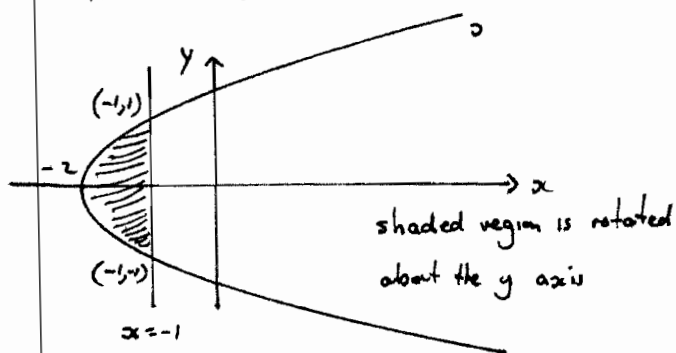 y
(-1,1)
-2
x
shaded region is rotated
about the y axis
(-1,-1)
x=-1